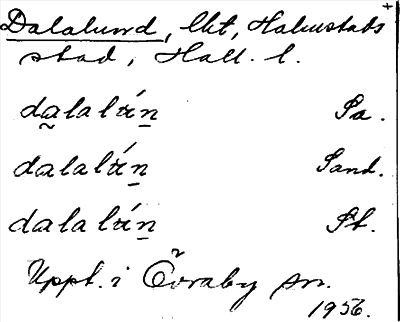 Dalalund, lht, Halmstads +
stad, Hall. l.
da̰lalʉ́n̲ Sa.
dalalʉ́n̲ Sand.
dalalʉ́n̲ St.
Uppt. i Övraby sn.
1956.